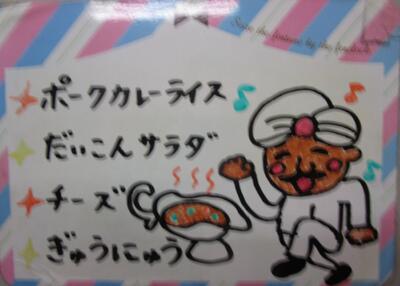 Save the fortune by the firstclass
ポークカレーライス
だいこんサラダ
チーズ
ぎゅうにゅう